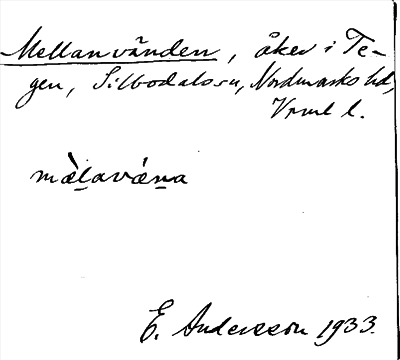 Mellanvänden, åker i Te-
gen, Silbodalssn, Nordmarks hd,
Vrml l.
mæ̀l̠avǽn̠a
E. Andersson 1933.